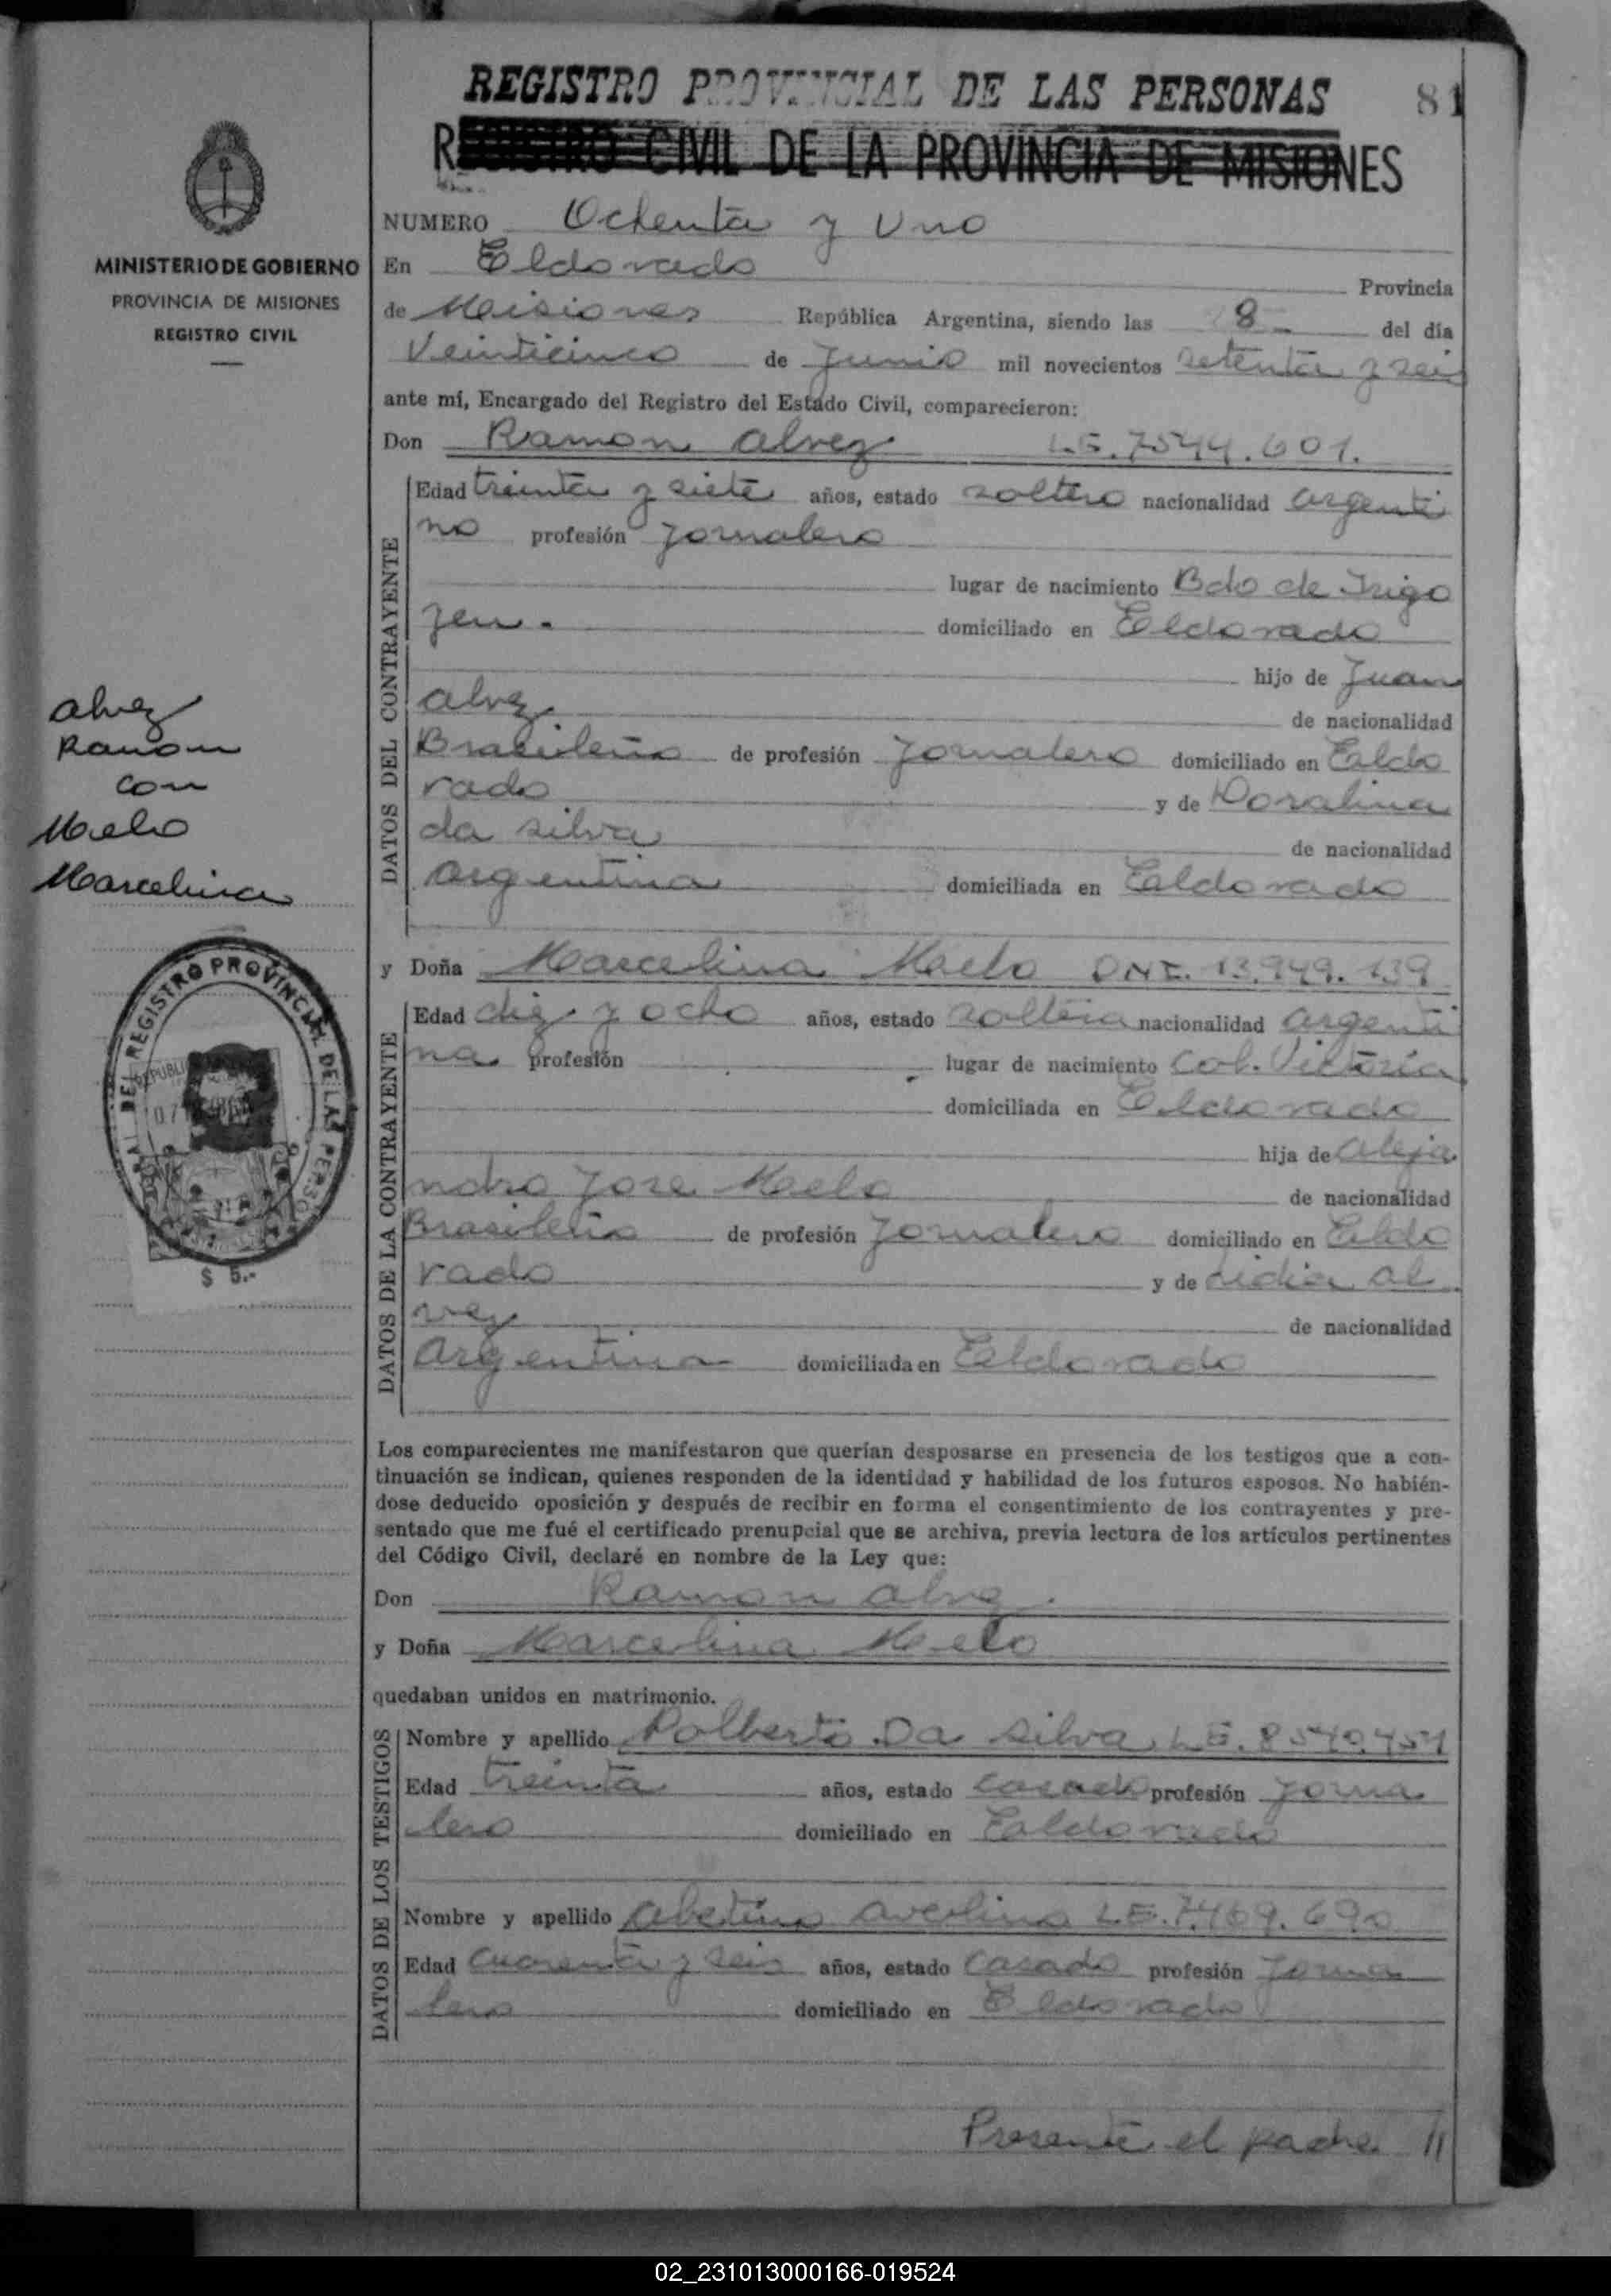 REGISTRO PROVINCIAL DE LAS PERSONAS 81
REGISTRO CIVIL DE LA PROVINCIA DE MISIONES
MINISTERIO DE GOBIERNO
PROVINCIA DE MISIONES
REGISTRO CIVIL
NUMERO Ochenta y Uno
En Eldorado Provincia
de Misiones República Argentina, siendo las 8 del día
Veinticinco de Junio mil novecientos setenta y seis
ante mí, Encargado del Registro del Estado Civil, comparecieron:
Don Ramon Alvez L.E. 7544.601.
DATOS DEL CONTRAYENTE
Edad treinta y siete años, estado soltero nacionalidad argenti
no profesión Jornalero
lugar de nacimiento Bdo de Irigo
yen. domiciliado en Eldorado
hijo de Juan
Alvez de nacionalidad
Brasileña de profesión Jornalero domiciliado en Eldo
rado y de Doralina
da silva de nacionalidad
argentina domiciliada en Eldorado
Alvez
Ramon
con
Melo
Marcelina
DEL REGISTRO PROVINCIAL DE LAS
$ 5.-
y Doña Marcelina Melo DNI. 13.949.139
DATOS DE LA CONTRAYENTE
Edad diez y ocho años, estado soltera nacionalidad argenti
na profesión lugar de nacimiento Col. Victoria
domiciliada en Eldorado
hija de Aleja
ndro Jose Melo de nacionalidad
Brasileña de profesión Jornalero domiciliado en Eldo
rado y de Lidia Al
vez de nacionalidad
Argentina domiciliada en Eldorado
Los comparecientes me manifestaron que querían desposarse en presencia de los testigos que a con-
tinuación se indican, quienes responden de la identidad y habilidad de los futuros esposos. No habién-
dose deducido oposición y después de recibir en forma el consentimiento de los contrayentes y pre-
sentado que me fué el certificado prenupcial que se archiva, previa lectura de los artículos pertinentes
del Código Civil, declaré en nombre de la Ley que:
Don Ramon Alvez.
y Doña Marcelina Melo
quedaban unidos en matrimonio.
DATOS DE LOS TESTIGOS
Nombre y apellido Dolberto Da silva L.E. 8540.451
Edad treinta años, estado casado profesión Jorna
lero domiciliado en Eldorado
Nombre y apellido Avelino L.E. 7.469.690
Edad cuarenta y seis años, estado casado profesión Jorna
lero domiciliado en Eldorado
Presente el padre //
02_231013000166-019524